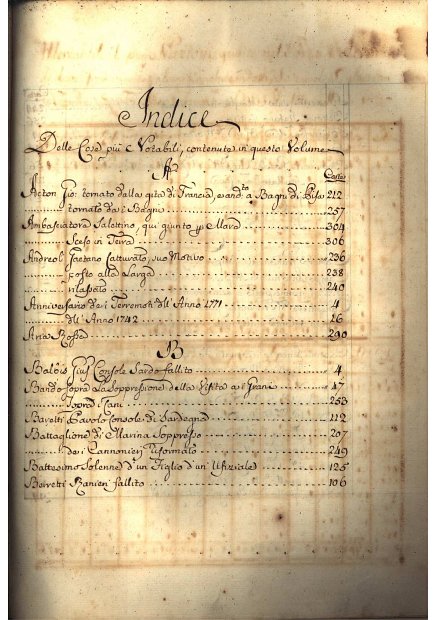 Indice
Delle Cose più Notabili, contenute in questo Volume
A
Carte
Acton Gio: tornato dalla gita di Francia, e andto. a Bagni di Pisa 212
tornato da i Bagni 257
Ambasciatore Salettino, qui giunto p Mare 304
Sceso in Terra 306
Andreol Gaetano Catturato, suo Motivo 236
posto alla Larga 238
rilassato 240
Anniversario dei Terremoti dell' Anno 1771 4
dell' Anno 1742 26
Aria Rossa 290
B
Console Sardo fallito 4
Bando sopra la Soppressione della Visita a i Grani 47
sopra i Cani 253
Baretti Pavolo Console di Sardegna 112
Battaglione di Marina Soppresso 207
dei Cannonieri Riformato 249
Battesimo Solenne d'un Figlio d'un' Ufiziale 125
Berretti Ranieri fallito 106